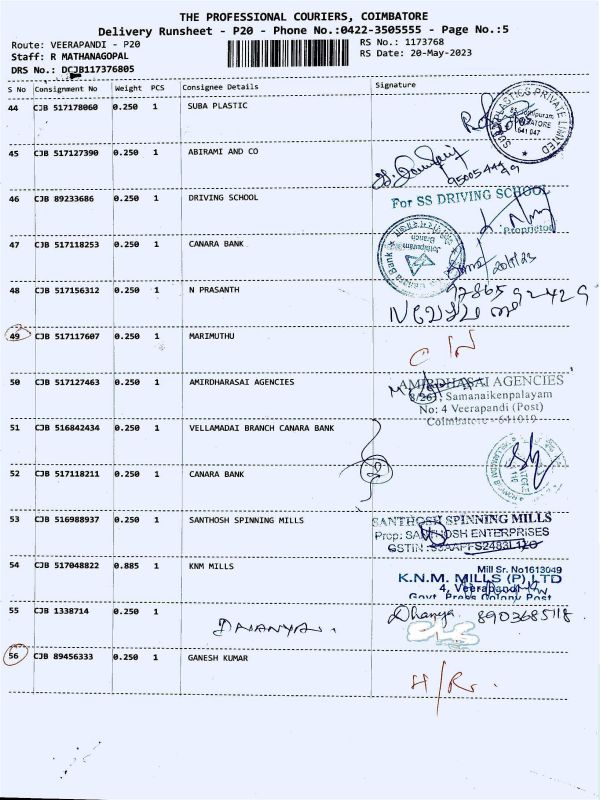 THE PROFESSIONAL COURIERS, COIMBATORE
Delivery Runsheet - P20 - Phone No.:0422-3505555 - Page No.:5
Route: VEERAPANDI - P20 RS No.: 1173768
Staff: R MATHANAGOPAL RS Date: 20-May-2023
DRS No.: DCJB117376805
S No Consignment No Weight PCS Consignee Details Signature
44 CJB 517178060 0.250 1 SUBA PLASTIC
45 CJB 517127390 0.250 1 ABIRAMI AND CO
46 CJB 89233686 0.250 1 DRIVING SCHOOL For SS DRIVING SCHOOL
Proprietor
47 CJB 517118253 0.250 1 CANARA BANK
48 CJB 517156312 0.250 1 N PRASANTH
49 CJB 517117607 0.250 1 MARIMUTHU
50 CJB 517127463 0.250 1 AMIRDHARASAI AGENCIES AMIRDHASAI AGENCIES
8/261, Samanaikenpalayam
No: 4 Veerapandi (Post)
Coimbatore - 641019
51 CJB 516842434 0.250 1 VELLAMADAI BRANCH CANARA BANK
52 CJB 517118211 0.250 1 CANARA BANK
53 CJB 516988937 0.250 1 SANTHOSH SPINNING MILLS SANTHOSH SPINNING MILLS
Prop: SANTHOSH ENTERPRISES
GSTIN
54 CJB 517048822 0.885 1 KNM MILLS Mill Sr. No1613049
K.N.M. MILLS (P) LTD
4, Veerapandi
Govt. Press Colony Post
55 CJB 1338714 0.250 1 Dhanya 8903685118
DHANYA.
56 CJB 89456333 0.250 1 GANESH KUMAR